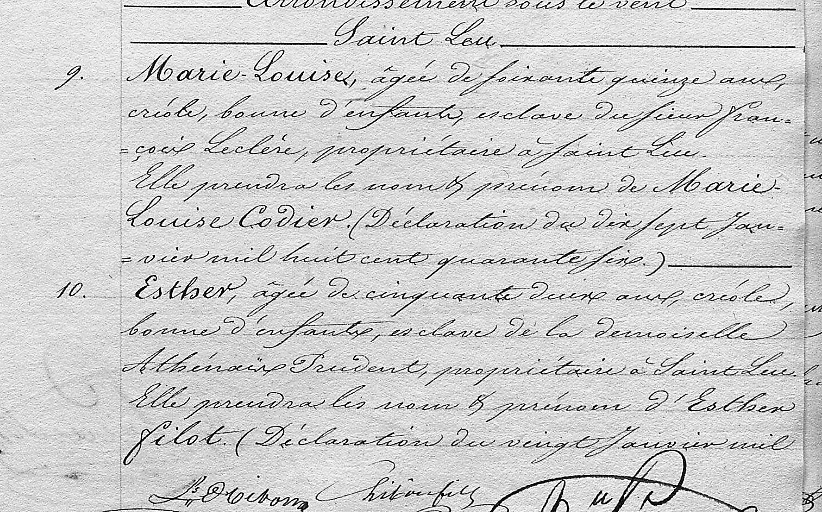 Arrondissement sous le vent
Saint Leu
9. Marie-Louise, âgée de soixante quinze ans,
créole, bonne d'enfants, esclave du sieur Fran=
=çois Leclére, propriétaire à Saint Leu.
Elle prendra les nom & prénom de Marie-
Louise Codier. (Déclaration du dix sept Jan=
=vier mil huit cent quarante six.)
10. Esther, âgée de cinquante deux ans, créole,
bonne d'enfants, esclave de la demoiselle
Athénaïs Prudent, propriétaire à Saint Leu.
Elle prendra les nom & prénom d'Esther
Filot. (Déclaration du vingt Janvier mil